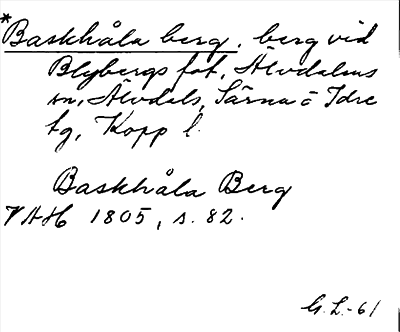 *Baskhåla berg, berg vid
Blybergs fot, Älvdalens
sn, Älvdals, Särna o Idre
tg, Kopp l.
Baskhåla Berg
VAH 1805, s. 82.
G. L. -61